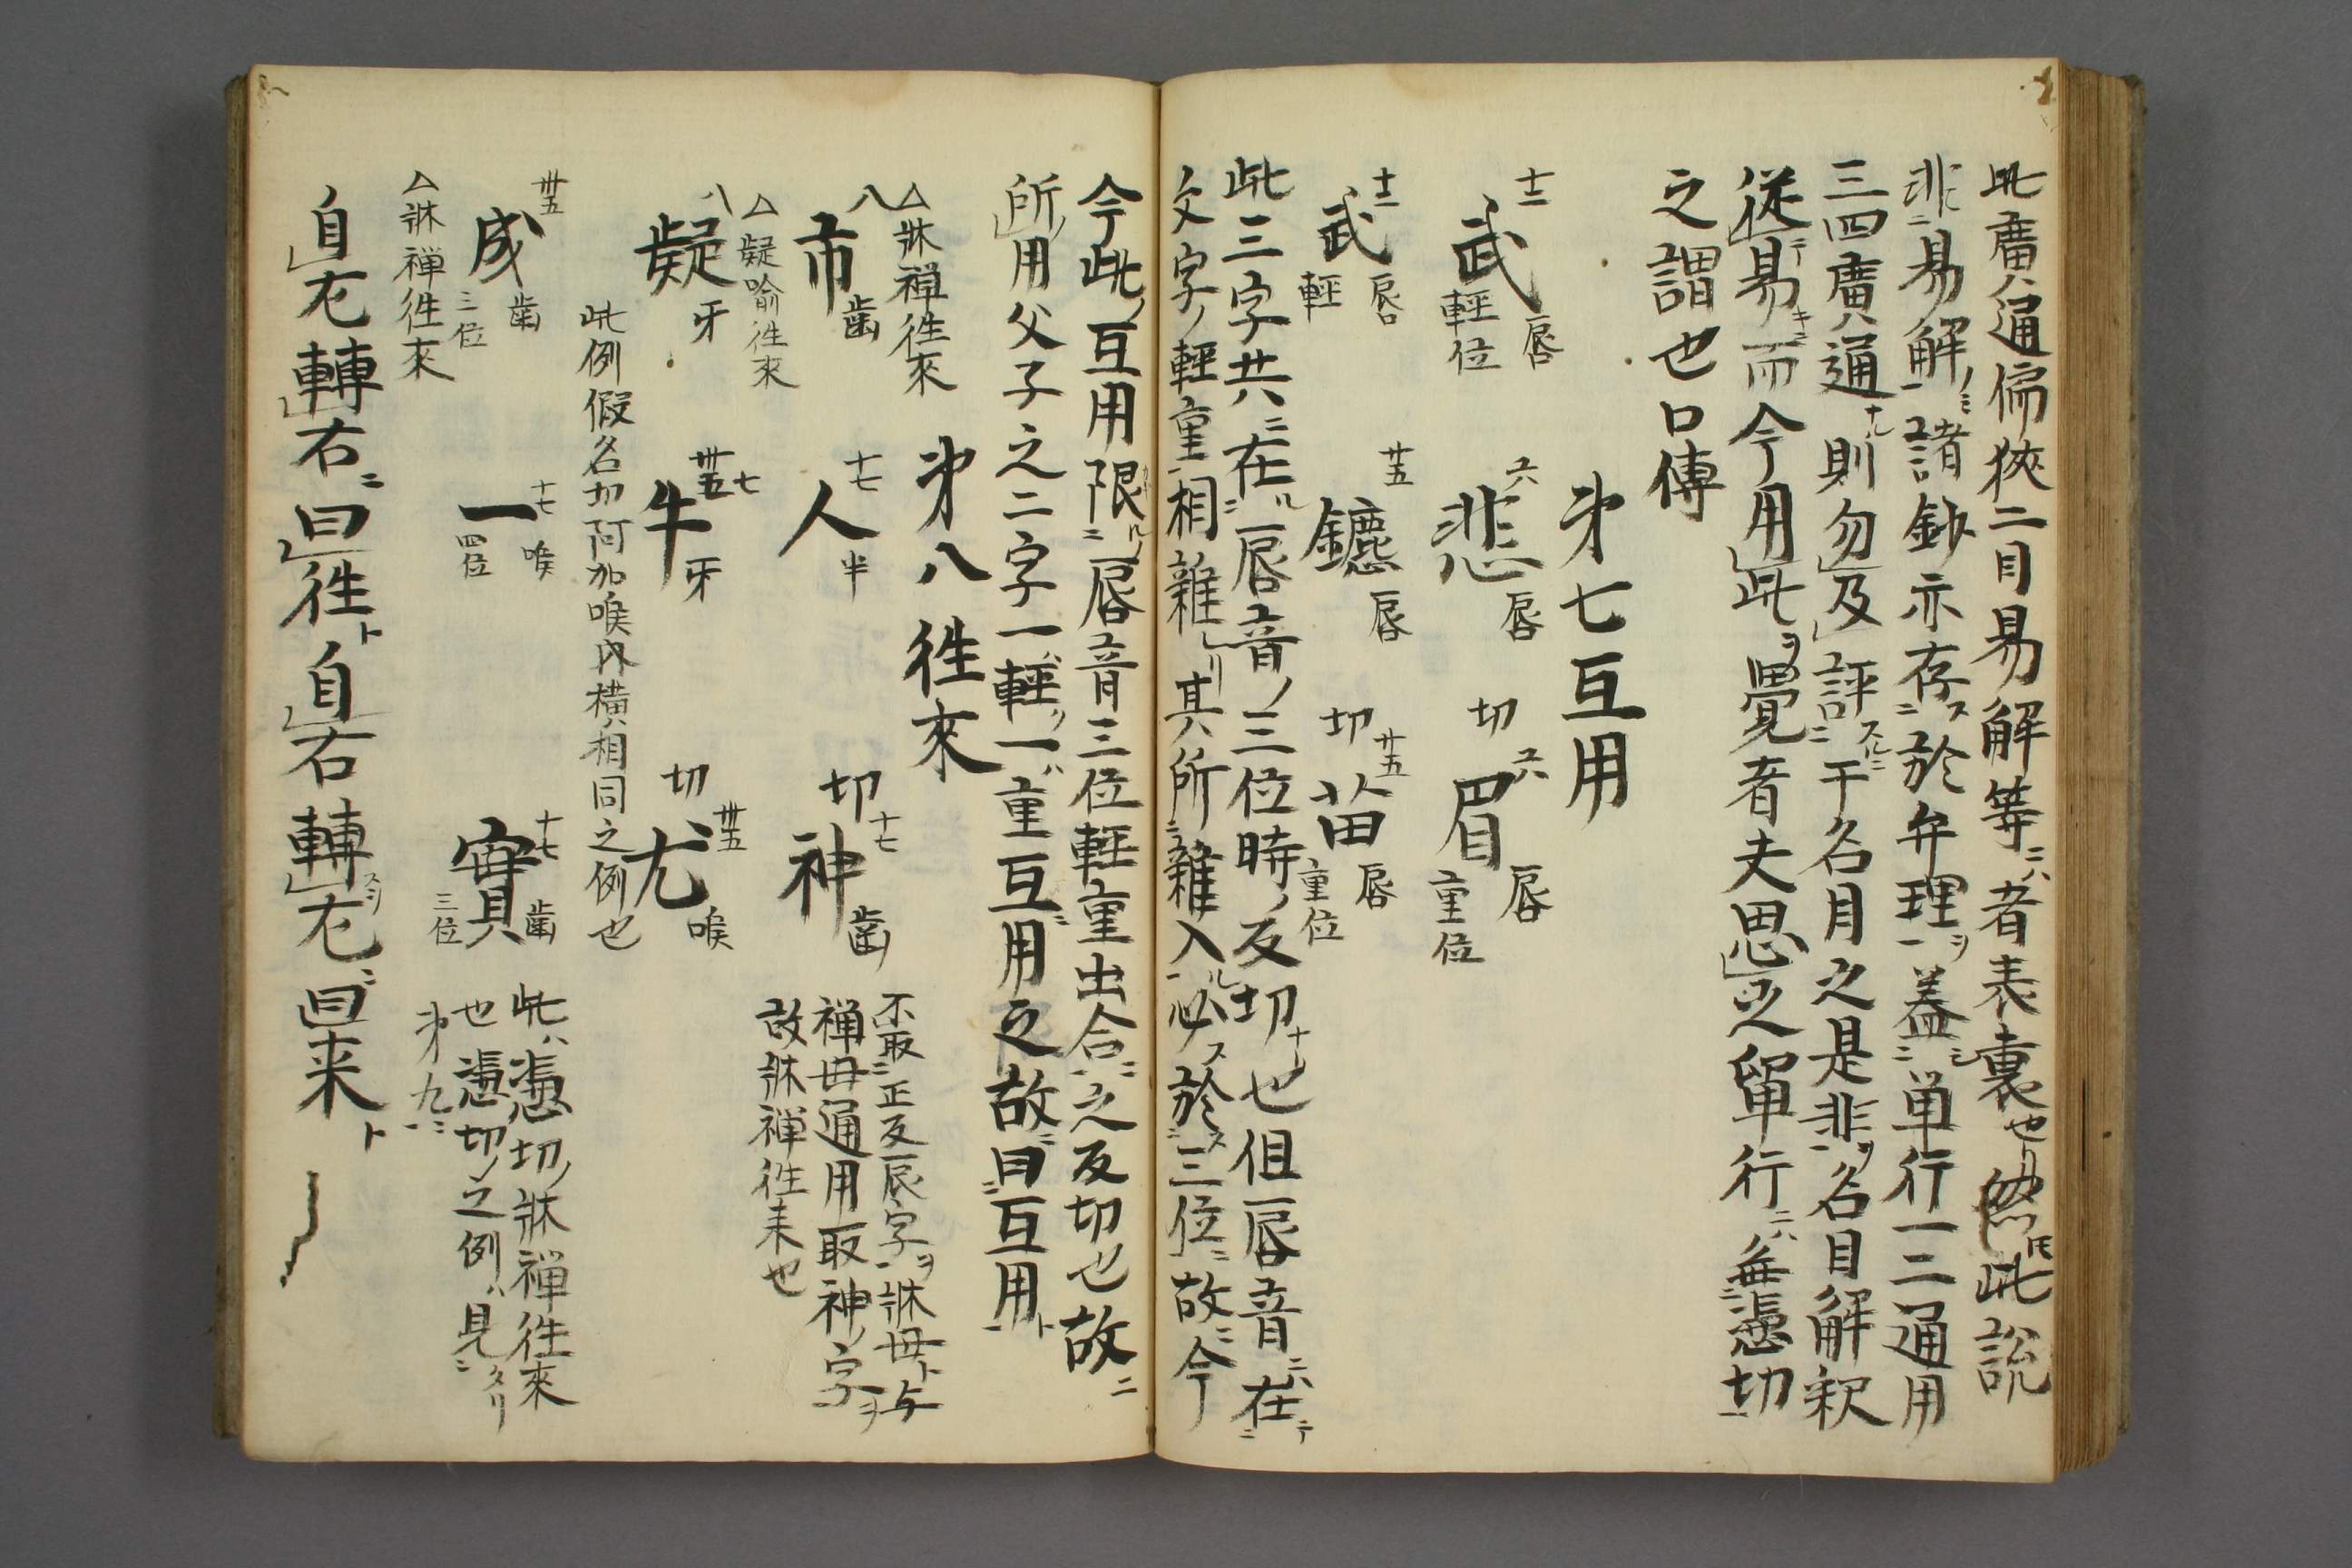 此廣ハ通偏狹二目易解等ニハ者表裏也ノ然𪜈此説
非ニ易解ノミ諸鈔亦存ス於弁理ヲ蓋シ単行一二通用
三四廣ハ通ナレ則勿及評スルニ干名月之是非ヲ名目解釈
従テ易キニ而今用此ヲ覺者夫思之単行ニハ無憑切
之謂也口傳
第七互用
十二 武 唇 輕位 六 悲 唇 切 六 眉 唇 重位
十二 武 唇 輕 廿五 鑣 唇 切 廿五 苗 唇 重位
此三字共ニ在ル唇音ノ三位時ノ反切ナリ也但唇音ニハ在テ
文字ノ輕重相雜リ其所ニ雜入ル必ス於ス三位ニ故ニ今
今此ノ互用限ル唇音三位輕重出合ニ之反切也故ニ
所用父子之二字一ハ輕ク一ハ重互ニ用之故ニ曰互用ト
第八徃來
△牀禅徃來
八 市 歯 十七 人 半 切 十七 神 歯
不取正反辰字ヲ牀母ト与
禅母通用取神ノ字ヲ
故牀禅徃来也
△疑喻徃来
八 疑 牙 卅五 七 牛 牙 切 卅五 尤 喉
此例假名切阿加喉内横ハ相同之例也
卅五 成 歯 三位 十七 一 喉 四位 十七 實 歯 三位
此ハ憑切ノ牀禅徃來
也憑切ノ之例ハ見タリ
第九ニ
△牀禅徃來
自左轉右ニ曰徃ト自右轉スヲ左ニ曰来ト